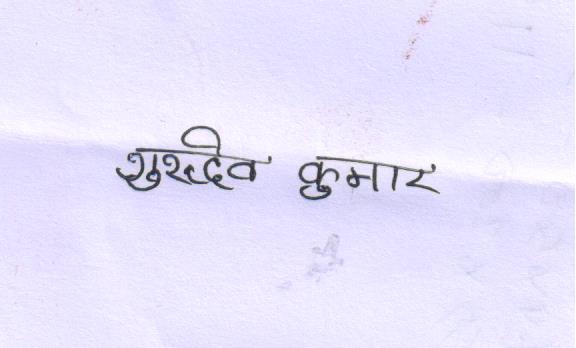 शुरुदेव कुमार